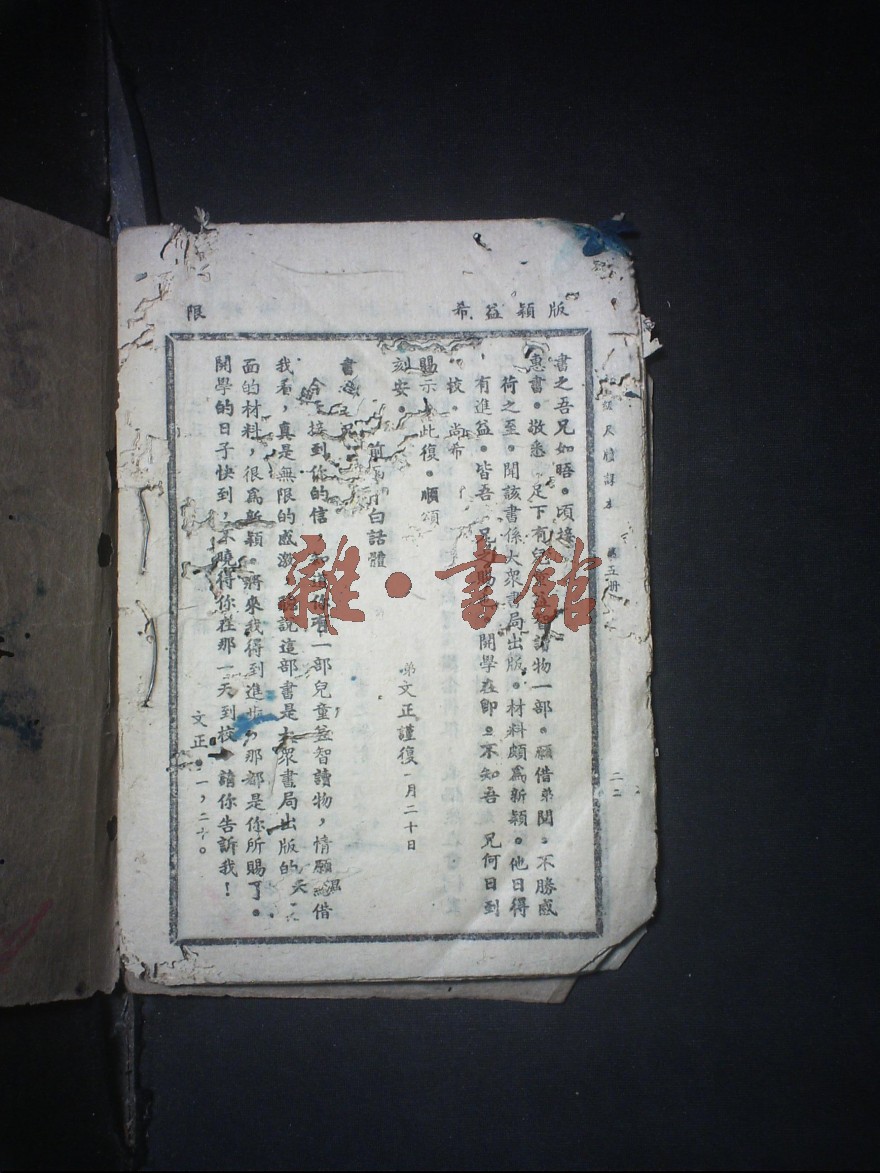 版 穎 益 希 限
級尺牘課本 第五册 二二
書之吾兄如晤。頃接
惠書。敬悉 足下有兒童益智讀物一部。願借弟閱。不勝感
荷之至。聞該書係大衆書局出版。材料頗爲新穎。他日得
有進益。皆吾 兄 賜 開學在卽。不知吾 兄何日到
校。尚希
賜示 此復。順頌
刻安。
弟文正謹復 一月二十日
前 白話體
書
今天接到你的信 知道你有一部兒童益智讀物,情願 借
我看,眞是無限的感激 聽說這部書是大衆書局出版的
面的材料,很爲新穎。將來我得到進步,那都是你所賜了。
開學的日子快到,不曉得你在那一天到校 請你告訴我!
文正。一,二十。
雜·書館